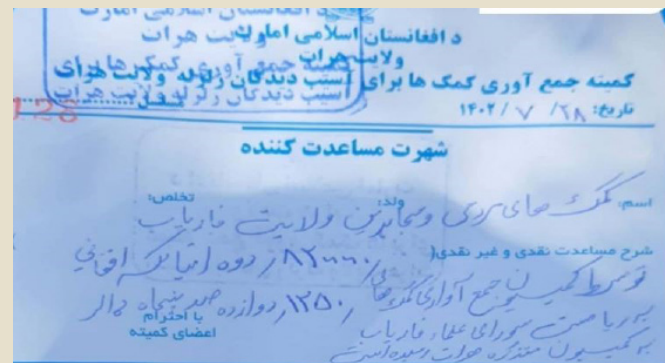 د افغانستان اسلامی امارت
ولایت هرات
کمیته جمع آوری کمک ها برای آسیب دیدگان زلزله ولایت هرات
تاریخ: ۲۸ / ۷ / ۱۴۰۲
126
شهرت مساعدت کننده
اسم: کمک های مردمی و مجاهدین ولایت فاریاب
ولد:
تخلص:
شرح مساعدت نقدی و غیر نقدی(
توسط کمیسیون جمع آوری کمک های
۱۲۵۰ / دوازده صد پنجاه دالر
به ریاست شورای علماء فاریاب
به کمیسیون هرات رسیده است
با احترام
اعضای کمیته